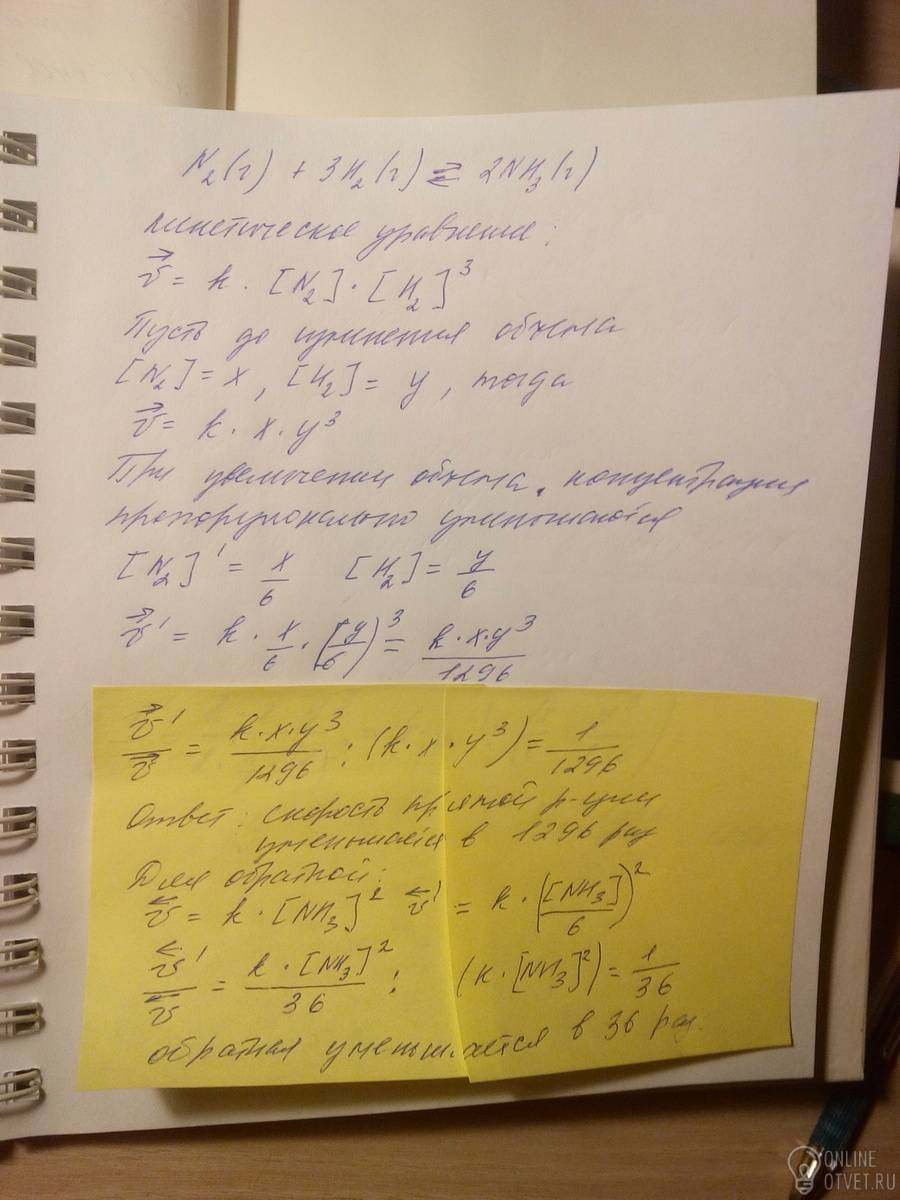 N₂(г) + 3H₂(г) ⇄ 2NH₃(г)
кинетическое уравнение:
v⃗ = k · [N₂] · [H₂]³
Пусть до изменения объема
[N₂] = x, [H₂] = y, тогда
v⃗ = k · x · y³
При увеличении объема, концентрация
пропорционально уменьшается
[N₂]' = x/6 [H₂] = y/6
v⃗' = k · x/6 · (y/6)³ = k·x·y³/1296
v⃗'/v⃗ = k·x·y³/1296 : (k·x·y³) = 1/1296
Ответ: скорость прямой р-ции
уменьшается в 1296 раз
Для обратной:
v⃖ = k · [NH₃]² v⃖' = k · ([NH₃]/6)²
v⃖'/v⃖ = k · [NH₃]²/36 : (k · [NH₃]²) = 1/36
обратная уменьшается в 36 раз.
ONLINE
OTVET.RU